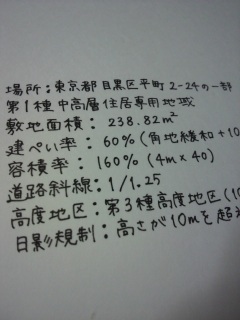 場所：東京都目黒区平町2-24の一部
第1種中高層住居専用地域
敷地面積：238.82m²
建ぺい率：60%(角地緩和+10
容積率：160%(4m×40)
道路斜線：1/1.25
高度地区：第3種高度地区(10
日影規制：高さが10mを超